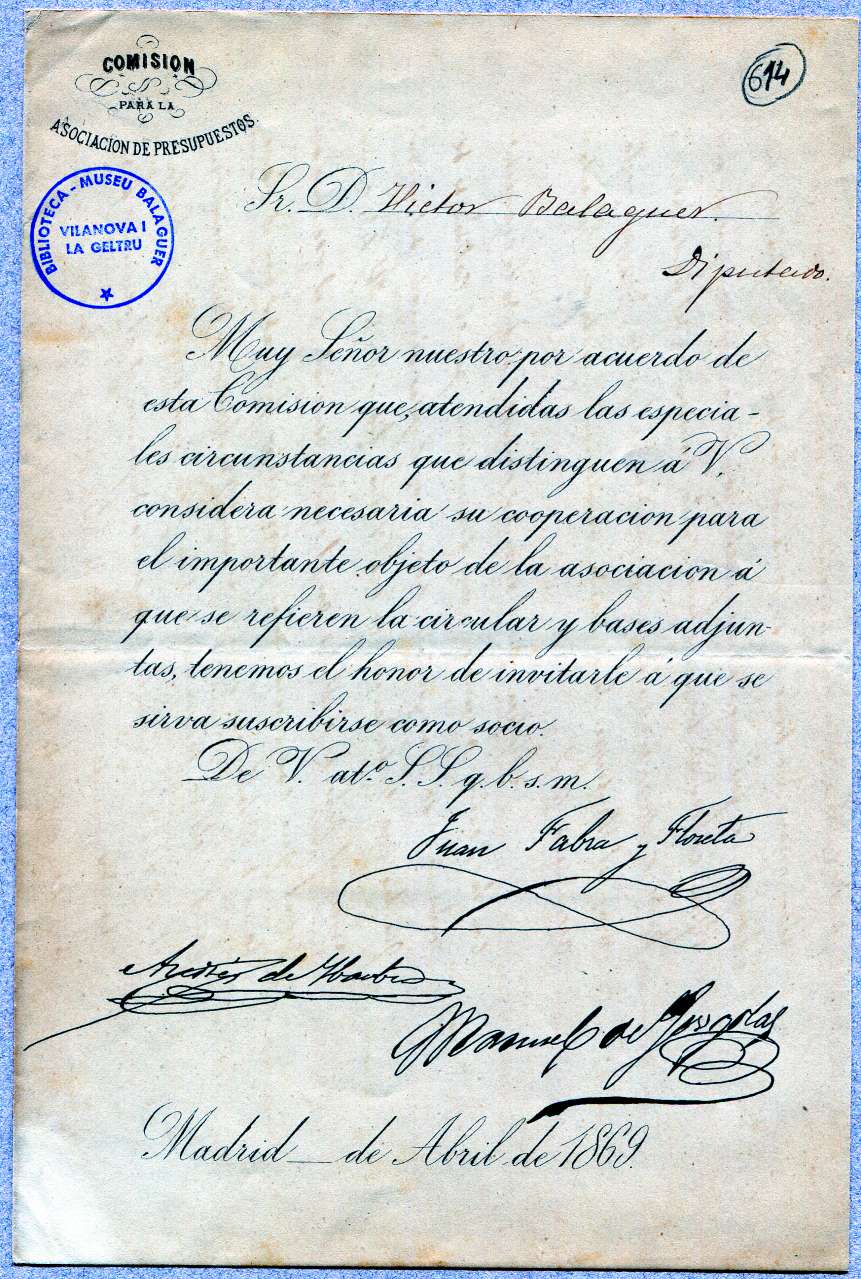 COMISION
PARA LA
ASOCIACION DE PRESUPUESTOS.
614
BIBLIOTECA - MUSEU BALAGUER
VILANOVA I
LA GELTRU
Sr. D. Victor Balaguer.
Diputado.
Muy Señor nuestro, por acuerdo de
esta Comision que, atendidas las especia-
les circunstancias que distinguen á V,
considera necesaria su cooperacion para
el importante objeto de la asociacion á
que se refieren la circular y bases adjun-
tas, tenemos el honor de invitarle á que se
sirva suscribirse como socio.
De V. at.º S. S. q. b. s. m.
Juan Fabra y Floreta
Andrés de
Manuel de
Madrid de Abril de 1869.